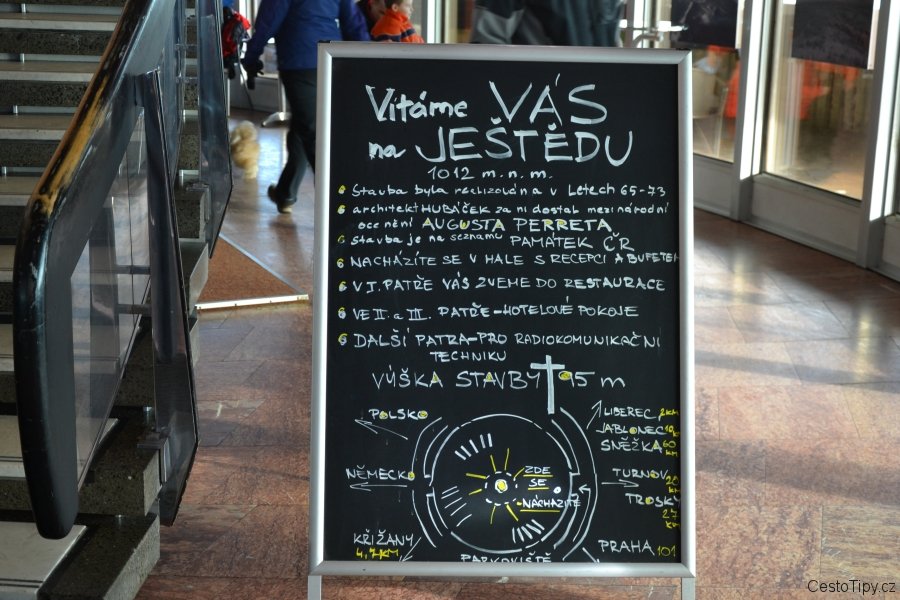 Vitáme VÁS
na JEŠTĚDU
1012 m.n.m.
Stavba byla realizována v Letech 65-73
architekt HUBÁČEK za ni dostal mezinárodní
ocenění AUGUSTA PERRETA
Stavba je na seznamu PAMÁTEK ČR
NACHÁZÍTE SE V HALE S RECEPCÍ A BUFETEM
V I. PATŘE VÁS ZVEME DO RESTAURACE
VE II. a III. PATŘE-HOTELOVÉ POKOJE
DALŠÍ PATRA-PRO RADIOKOMUNIKAČNÍ
TECHNIKU
VÝŠKA STAVBY 95 m
POLSKO
NĚMECKO
KŘIŽANY
4,7KM
ZDE
SE
NACHÁZÍTE
PARKOVIŠTĚ
LIBEREC 2KM
JABLONEC
SNĚŽKA 60
KM
TURNOV
20
KM
TROSKY
27
KM
PRAHA 101
CestoTipy.cz